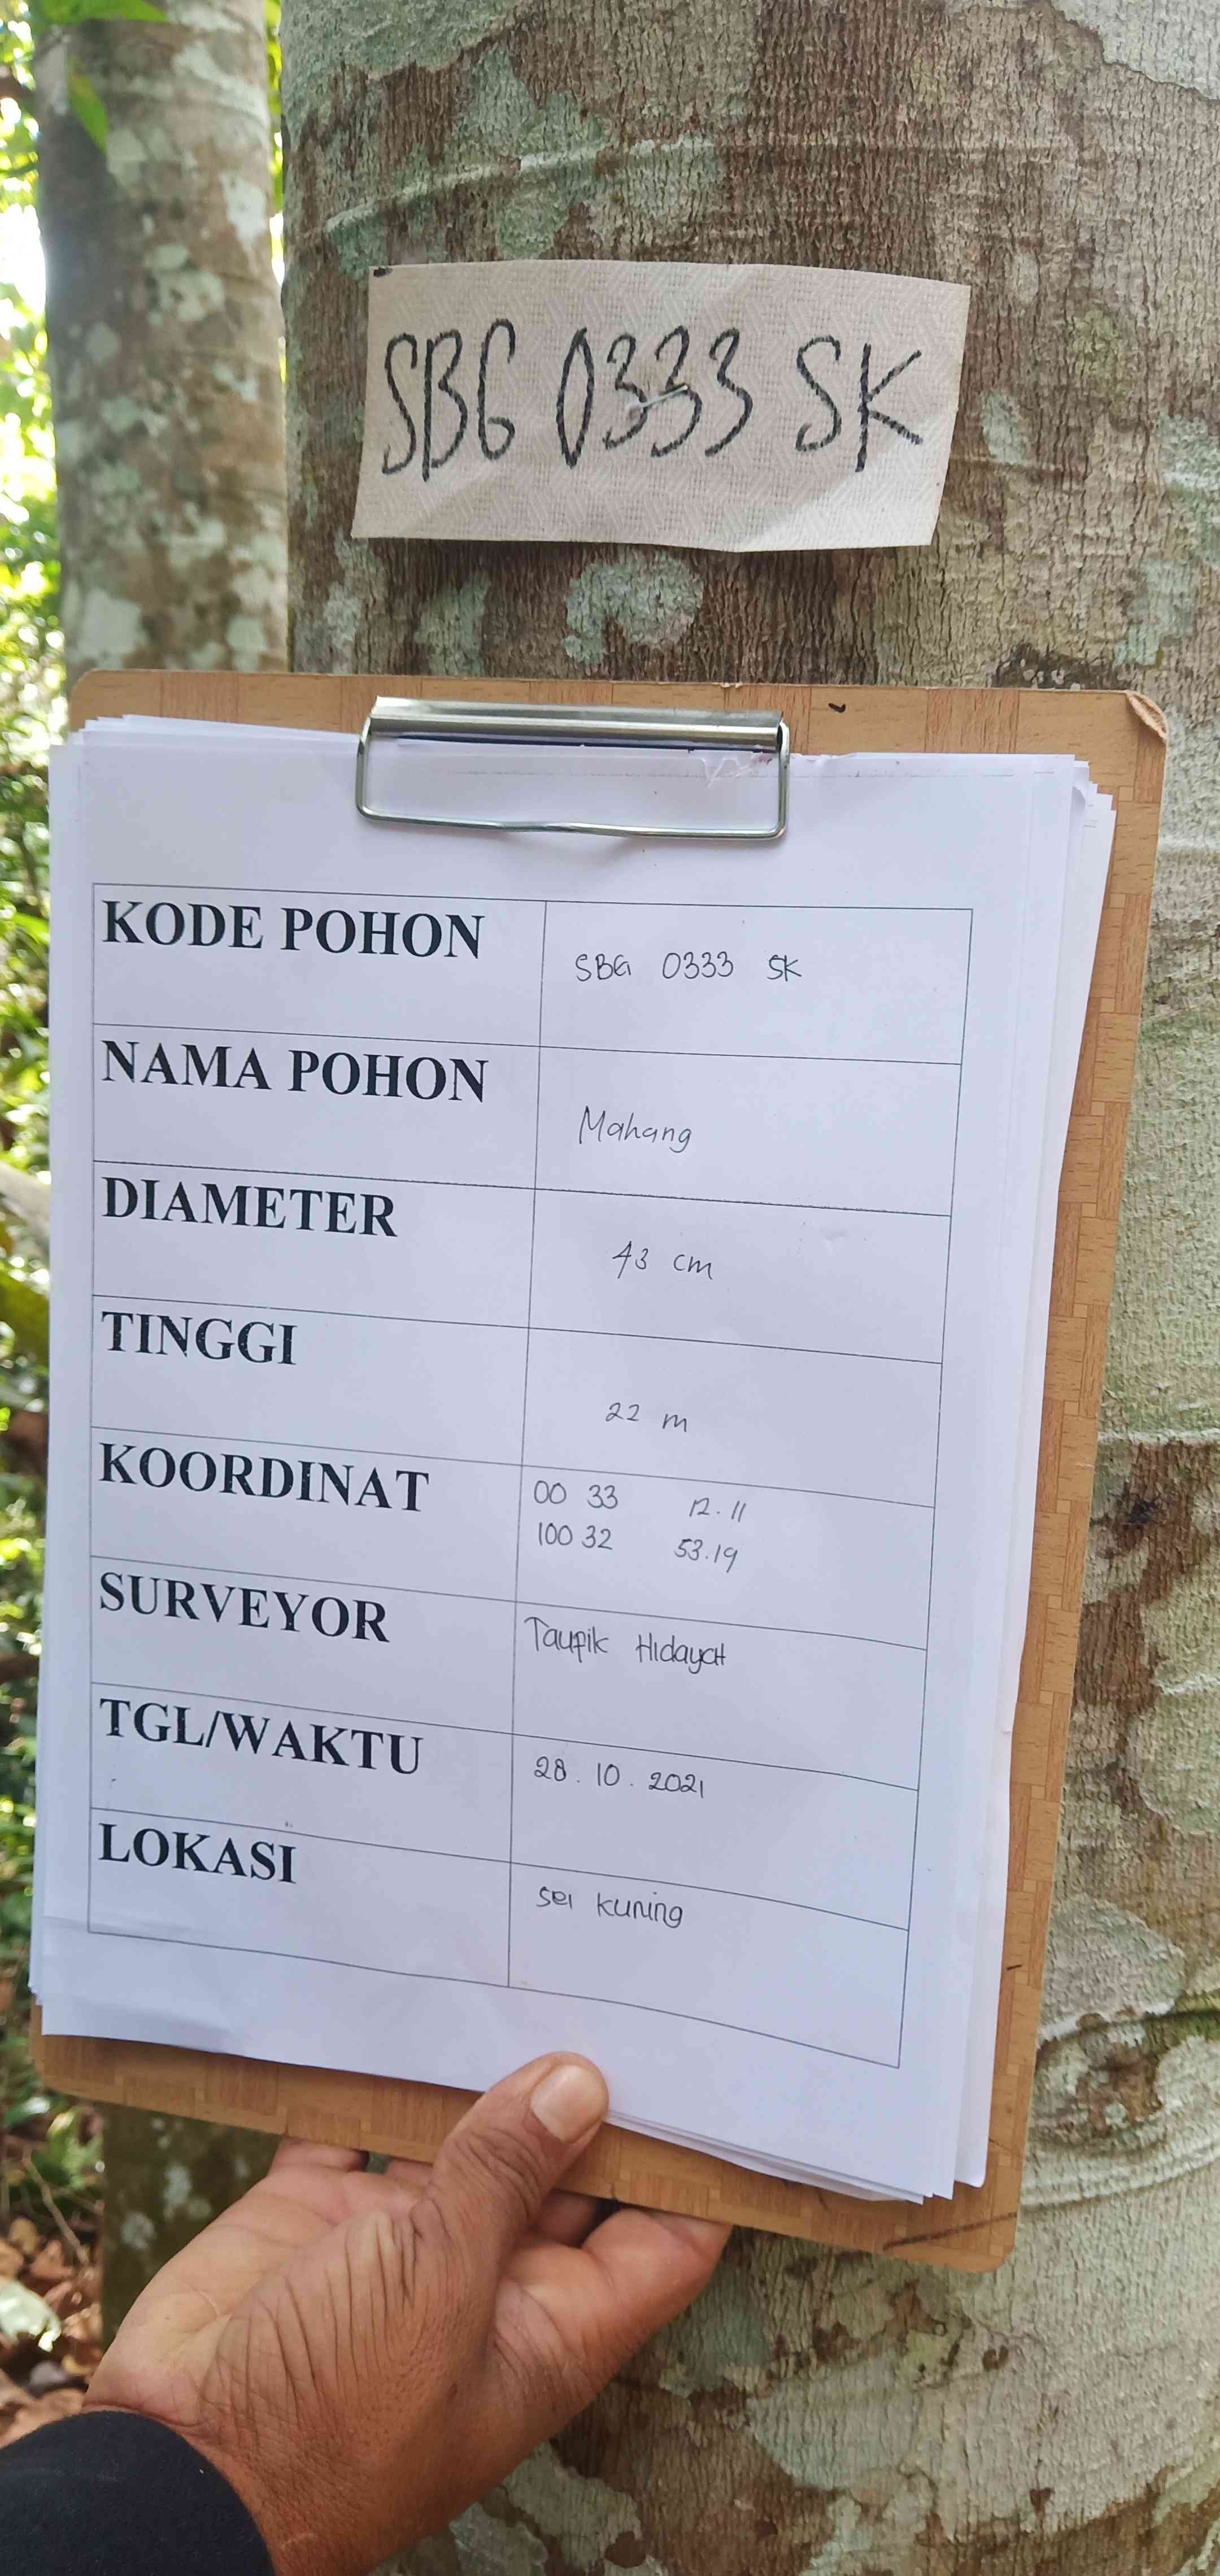 SBG 0333 SK
KODE POHON SBG 0333 SK
NAMA POHON Mahang
DIAMETER 43 cm
TINGGI 22 m
KOORDINAT 00 33 12.11
100 32 53.19
SURVEYOR Taupik Hidayat
TGL/WAKTU 28.10.2021
LOKASI Sei Kuning